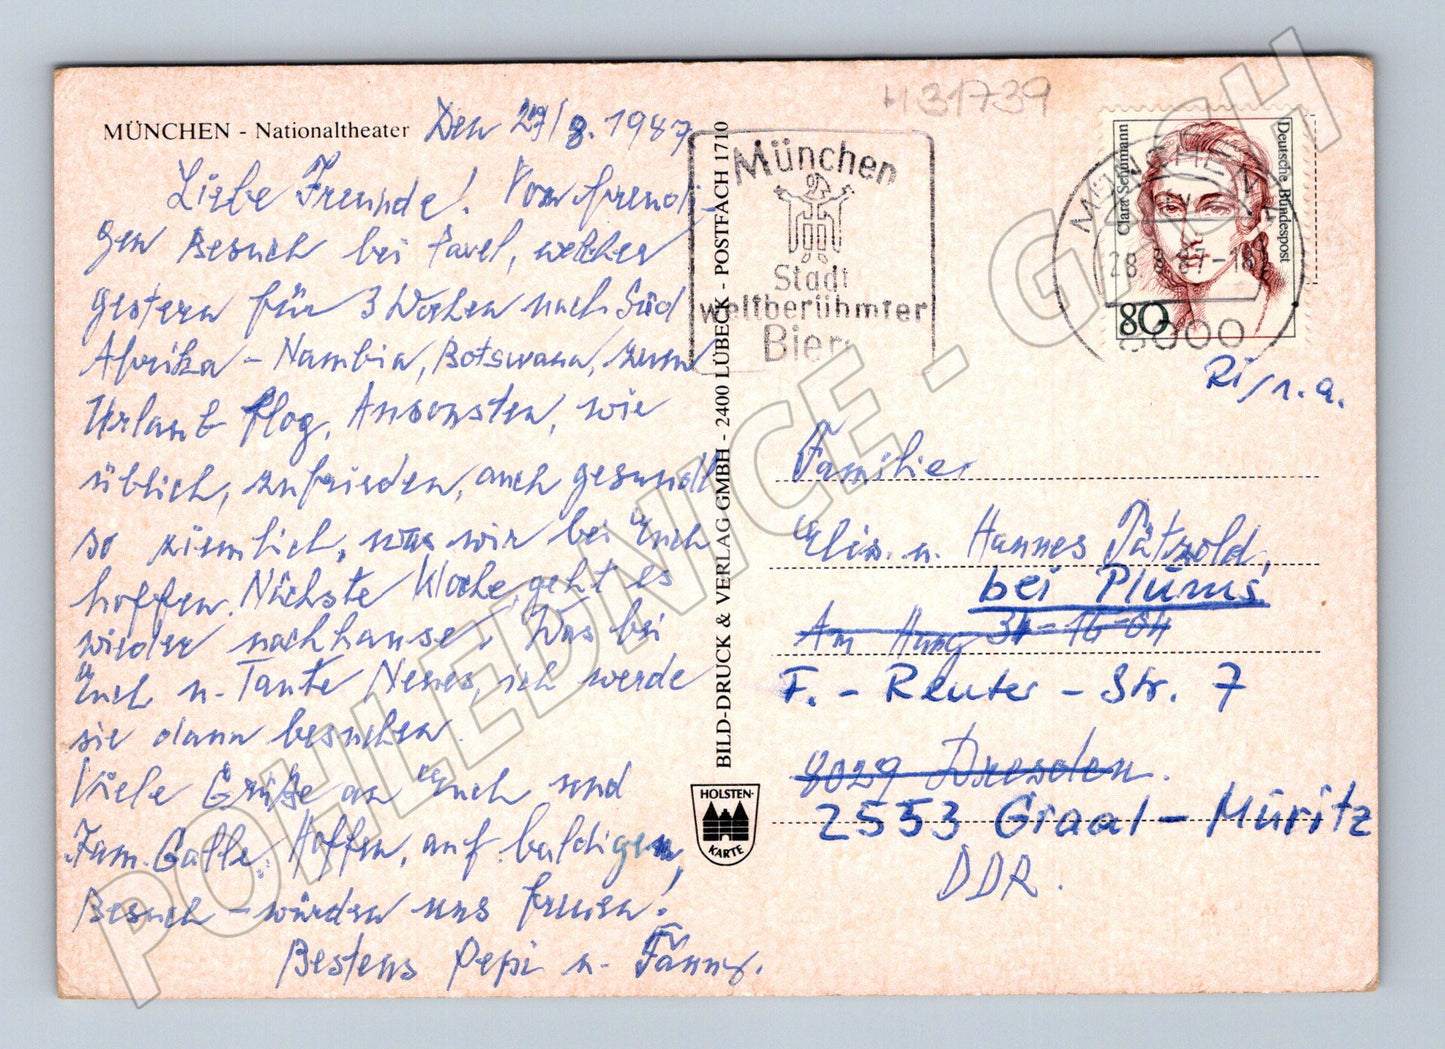 MÜNCHEN - Nationaltheater Den 27/8. 1987
Liebe Freunde! Vom freudi-
gen Besuch bei Pavel, welcher
gestern für 3 Wochen nach Süd
Afrika - Nambia, Botswana, zum
Urlaub flog. Ansonsten, wie
üblich, zufrieden, auch gesundh
so ziemlich, was wir bei Euch
hoffen. Nächste Woche, geht es
wieder nachhause. Was bei
Euch u. Tante Neues, ich werde
sie dann besuchen.
Viele Grüße an Euch und
Fam. Galle. Hoffen, auf baldigen,
Besuch - würden uns freuen!
Bestens Pepi u. Fanny.
BILD-DRUCK & VERLAG GMBH - 2400 LÜBECK - POSTFACH 1710
HOLSTEN-
KARTE
H31739
München
Stadt
weltberühmter
Bier
MÜNCHEN
28.8.87-18
8000
Clara Schumann
Deutsche Bundespost
80
Ri/1.a.
Familie
Elis. u. Hannes Pätzold,
bei Plums
Am Hang 31-16-04
F. - Reuter - Str. 7
8029 Dresden.
2553 Graal - Müritz
DDR.
POHLEDNICE - GASH